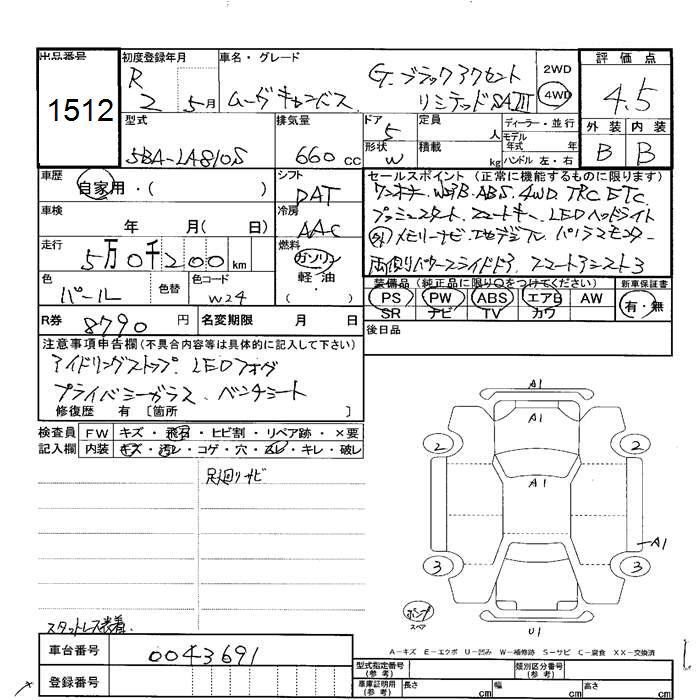 出品番号 初度登録年月 車名・グレード 評価点
1512
R 2 5月 ムーヴキャンバス G.ブラックアクセント リミテッド SAIII 2WD 4WD 4.5
型式 排気量 ドア 定員 ディーラー・並行 外装 内装
5BA-LA810S 660 cc 5 人 モデル年式 年 B B
形状 W 積載 kg ハンドル 左・右
車歴 自家用・( ) シフト DAT セールスポイント (正常に機能するものに限ります)
ワンオーナー. WエアB. ABS. 4WD. TRC. ETC.
車検 年 月( 日) 冷房 AAC プッシュスタート. スマートキー. LEDヘッドライト
走行 5万0千200 km 燃料 ガソリン 軽・油 ( ) 外 メモリーナビ. フルセグTV. パノラマモニター
両側パワースライドドア. スマートアシスト3
色 パール 色替 色コード W24 装備品 (純正品に限り○をつけてください) 新車保証書
PS PW ABS エアB AW 有・無
SR ナビ TV カワ
R券 8790 円 名変期限 月 日 後日品
注意事項申告欄(不具合内容等は具体的に記入して下さい)
アイドリングストップ. LEDフォグ
プライバシーガラス. ベンチシート
修復歴 有 〔箇所 〕
検査員 FW キズ・飛石・ヒビ割・リペア跡・×要
記入欄 内装 キズ・汚レ・コゲ・穴・スレ・キレ・破レ
足廻りサビ
A1
A1
2 2
A1
A1
3 3
ポンプ
スペア
U1
スタットレス装着.
A-キズ E-エクボ U-凹み W-補修跡 S-サビ C-腐食 XX-交換済
車台番号 0043691 型式指定番号 (参考) 類別区分番号 (参考)
登録番号 車庫証明用 (参考) 長さ cm 幅 cm 高さ cm